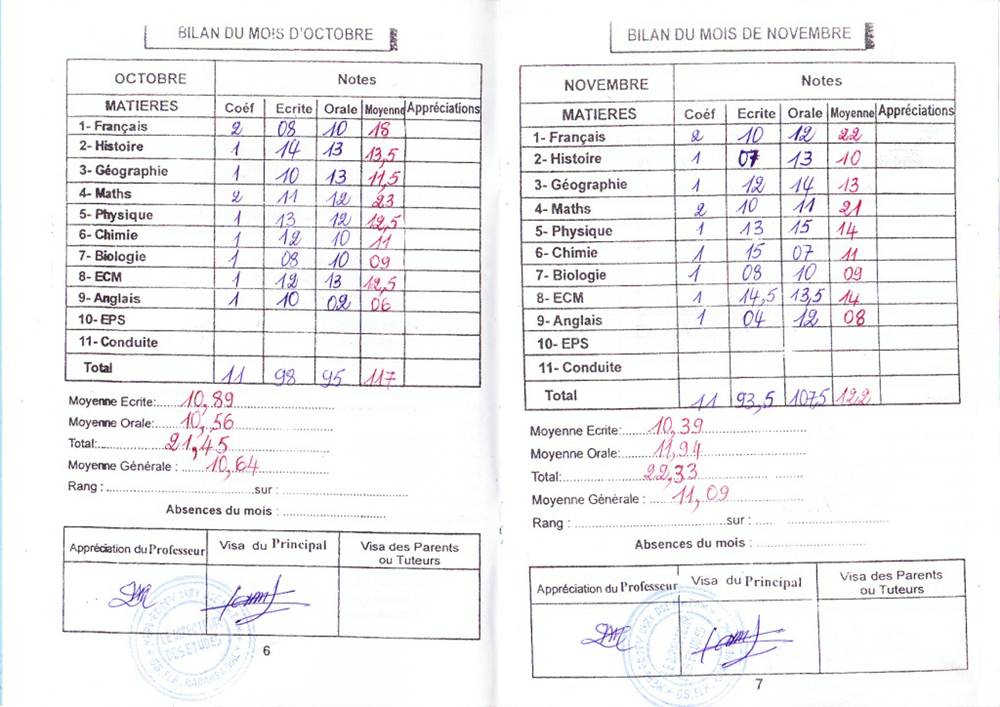 BILAN DU MOIS D'OCTOBRE
OCTOBRE Notes
MATIERES Coéf Ecrite Orale Moyenne Appréciations
1- Français 2 08 10 18
2- Histoire 1 14 13 13,5
3- Géographie 1 10 13 11,5
4- Maths 2 11 12 23
5- Physique 1 13 12 12,5
6- Chimie 1 12 10 11
7- Biologie 1 08 10 09
8- ECM 1 12 13 12,5
9- Anglais 1 10 02 06
10- EPS
11- Conduite
Total 11 98 95 117
Moyenne Ecrite: 10,89
Moyenne Orale: 10,56
Total: 21,45
Moyenne Générale : 10,64
Rang : sur :
Absences du mois :
Appréciation du Professeur Visa du Principal Visa des Parents
ou Tuteurs
DES ETUDES
6
BILAN DU MOIS DE NOVEMBRE
NOVEMBRE Notes
MATIERES Coéf Ecrite Orale Moyenne Appréciations
1- Français 2 10 12 22
2- Histoire 1 07 13 10
3- Géographie 1 12 14 13
4- Maths 2 10 11 21
5- Physique 1 13 15 14
6- Chimie 1 15 07 11
7- Biologie 1 08 10 09
8- ECM 1 14,5 13,5 14
9- Anglais 1 04 12 08
10- EPS
11- Conduite
Total 11 93,5 107,5 122
Moyenne Ecrite: 10,39
Moyenne Orale: 11,94
Total: 22,33
Moyenne Générale : 11,09
Rang : sur :
Absences du mois :
Appréciation du Professeur Visa du Principal Visa des Parents
ou Tuteurs
7